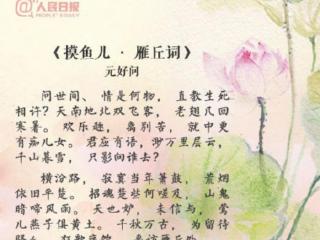 @人民日报
PEOPLE'S DAILY
《摸鱼儿·雁丘词》
元好问
问世间、情是何物，直教生死
相许？天南地北双飞客，老翅几回
寒暑。欢乐趣，离别苦，就中更
有痴儿女。君应有语，渺万里层云，
千山暮雪，只影向谁去？
横汾路，寂寞当年箫鼓，荒烟
依旧平楚。招魂楚些何嗟及，山鬼
暗啼风雨。天也妒，未信与，莺
儿燕子俱黄土。千秋万古，为留待